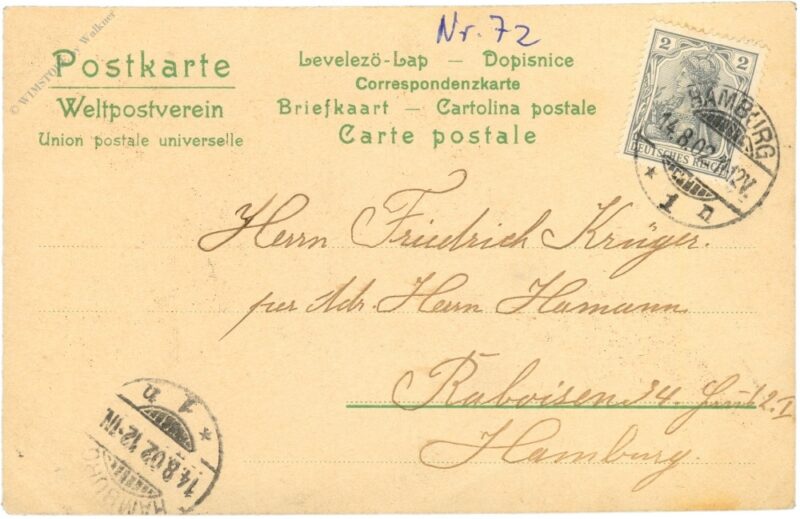 © WIMSTORE by Walkner
Nr. 72
Postkarte
Weltpostverein
Union postale universelle
Levelező-Lap — Dopisnice
Correspondenzkarte
Briefkaart — Cartolina postale
Carte postale
2 2
DEUTSCHES REICH
HAMBURG
14.8.02. 12V.
* 1 n
Herrn Friedrich Krüger.
per Adr. Herrn Hamann
Raboisen 34. 2. I
Hamburg.
* 1 n
14.8.02.12-1N.
HAMBURG